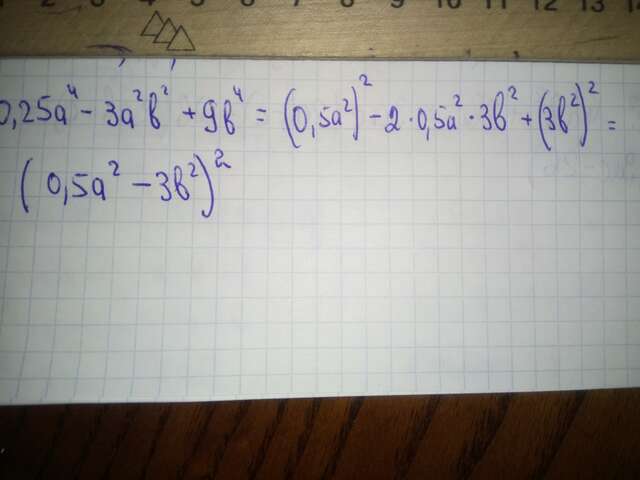 7 8 9 10 11 12 13 14
0,25a⁴ - 3a²b² + 9b⁴ = (0,5a²)² - 2·0,5a²·3b² + (3b²)² =
(0,5a² - 3b²)²